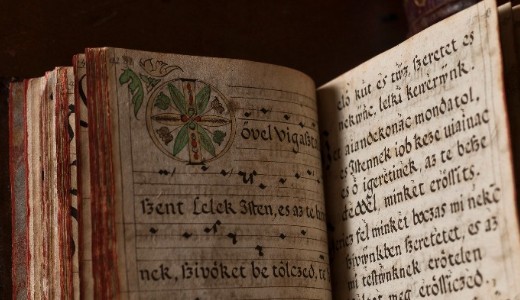 övel Vigaſzt
ſzent Lelek Iſten, es az te
nek, ſzivöket be tölczed, te
elö kút es tüz, ſzeretet es
lelki
aiandekonac mondatol,
es Iſtennek iob keze uiainac
es ö igeretinek, az te beſze
deddel, minket eröſsits.
fel minket boczas mi neke
ſzivünkben ſzeretetet, es az
mi teſtünknek erötelen
meg eröſsiczed